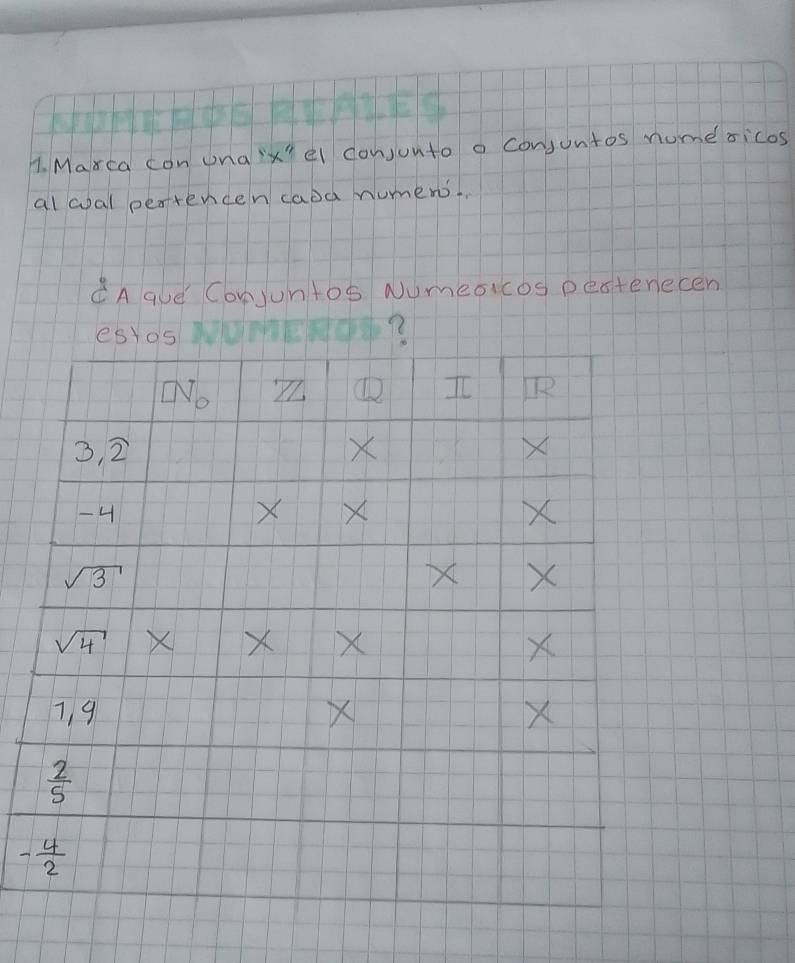 NUMEROS REALES
1. Marca con una "x" el conjunto o conjuntos numéricos
al cual pertencen cada numeró..
¿A qué Conjuntos Numericos pertenecen
estos NUMEROS?
ℕ₀ ℤ ℚ 𝕀 ℝ
3,2̅ X X
-4 X X X
√3 X X
√4 X X X X
1,9 X X
2/5
-4/2